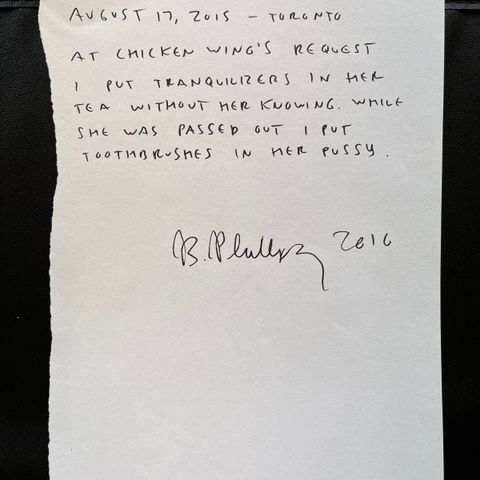 AUGUST 17, 2015 – TORONTO
AT CHICKEN WING'S REQUEST
I PUT TRANQUILIZERS IN HER
TEA WITHOUT HER KNOWING. WHILE
SHE WAS PASSED OUT I PUT
TOOTHBRUSHES IN HER PUSSY.
2016